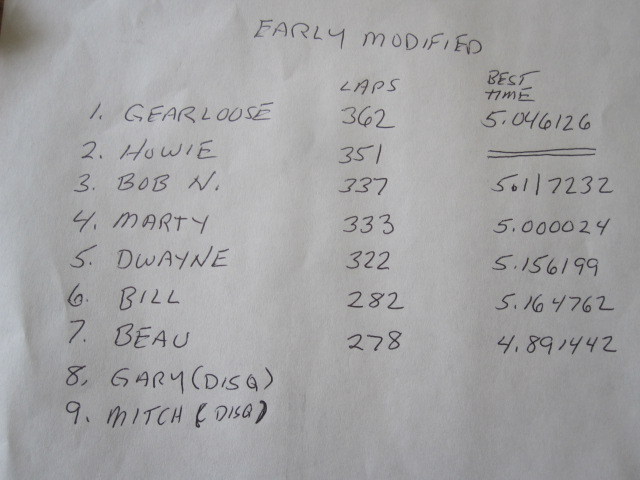 EARLY MODIFIED
LAPS BEST TIME
1. GEARLOOSE 362 5.046126
2. HOWIE 351
3. BOB N. 337 5.117232
4. MARTY 333 5.000024
5. DWAYNE 322 5.156199
6. BILL 282 5.164762
7. BEAU 278 4.891442
8. GARY (DISQ)
9. MITCH (DISQ)